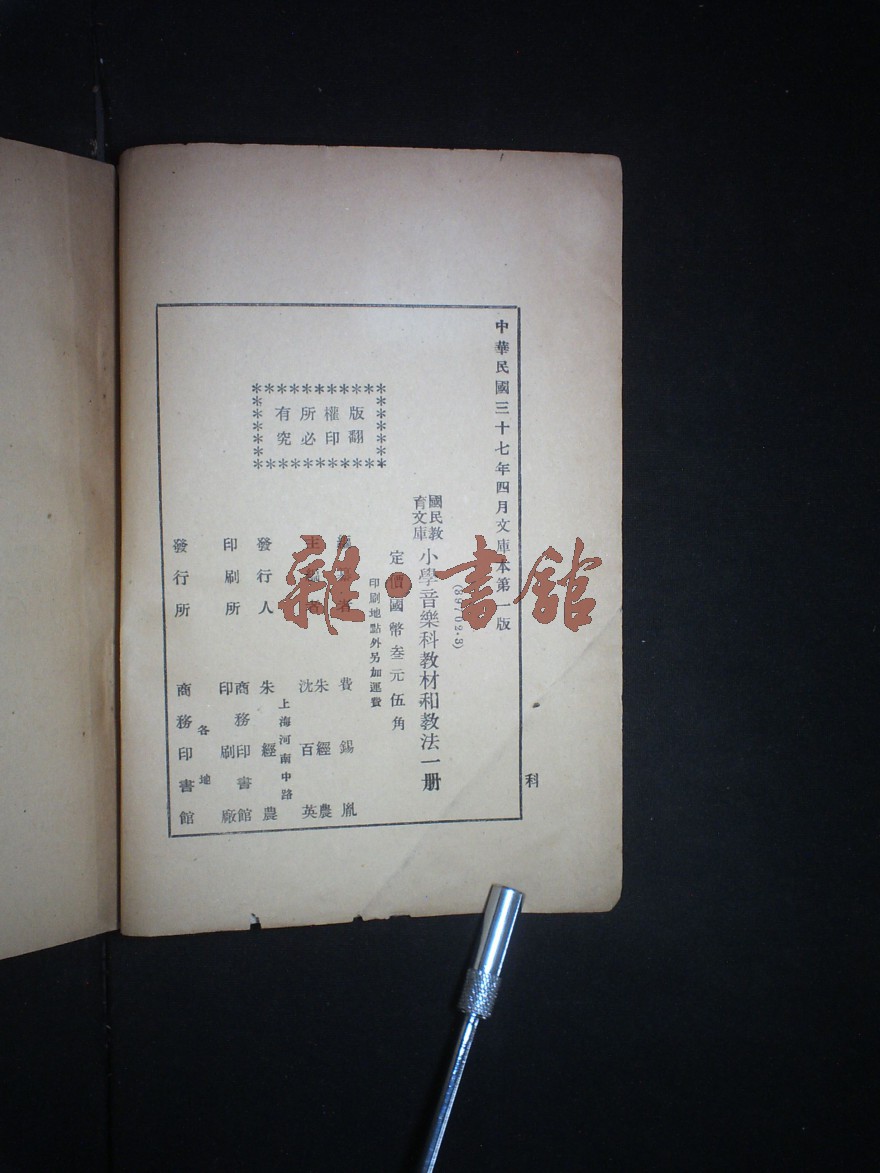 中華民國三十七年四月文庫本第一版
版權所有
翻印必究
國民教育文庫
小學音樂科教材和教法一册
定價國幣叁元伍角
印刷地點外另加運費
費錫胤
主編者 朱經農 沈百英
上海河南中路
發行人 朱經農
印刷所 商務印書館印刷廠
各地
發行所 商務印書館
科
雜·書館